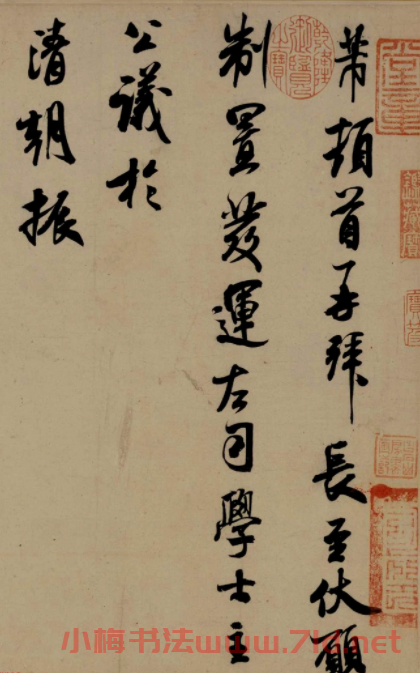 芾頓首再拜長至伏願
制置發運左司學士主
公議於
清朝振
小梅书法www.716.net